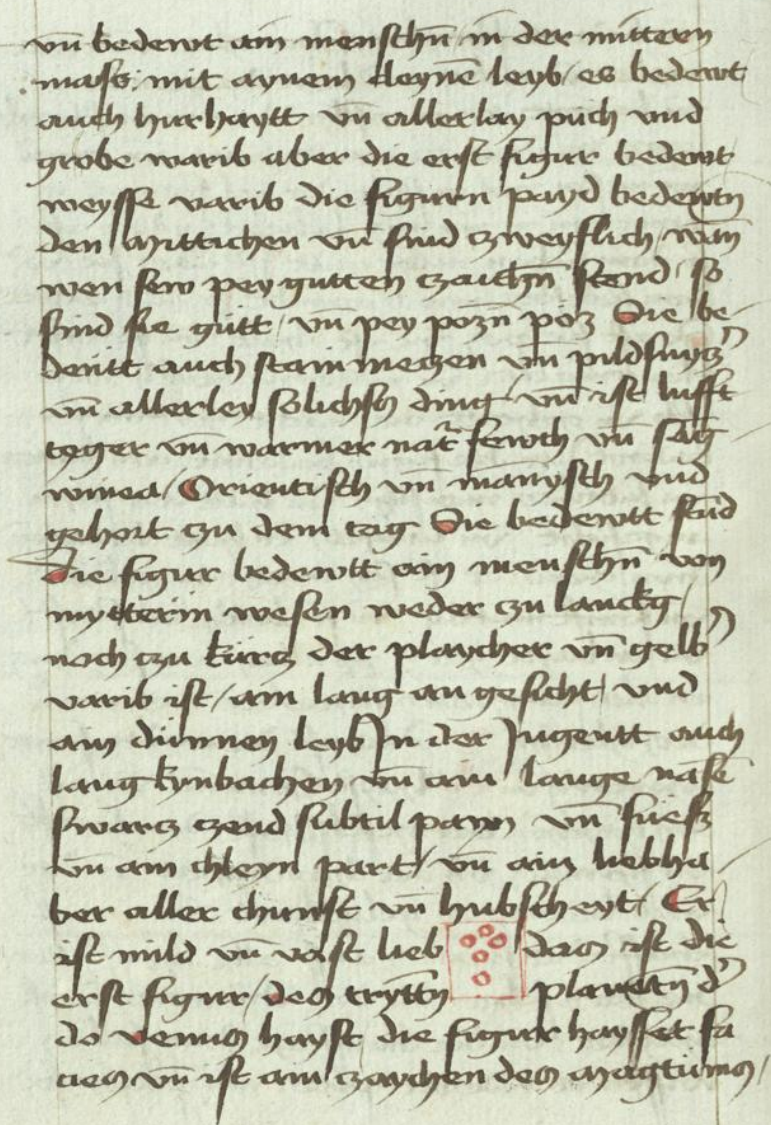 vn̄ bedewt ain menschn̄ in der mittern
mass mit aynem cleynē leyb / es bedewt
auch hurhaytt vn̄ allerlay puch vnd
grobe warib aber die erst figur bedewt
weysse varib die figurn payd bedewtn
den Mittichen vn̄ sind czweyflich / wan̄
wen sew pey gutten czaichn̄ stend / so
sind sie gütt / vn̄ pey pozn̄ poz Sie be-
deütt auch stainmeczen vn̄ pildsniczˀ
vn̄ allerley solichs ding / vn̄ ist lufft
teger vn̄ warmer nat᷑ fewth vn̄
Orientisch vn̄ mannysch vnd
gehort czu dem tag Sie bedewtt
Die figur bedewtt ain menschn̄ von
mytterin wesen weder czu lanckg /
noch czu kürcz der playcher vn̄ gelbˀ
varib ist / ain lang angesicht vnd
ain dünnen leyb In der Jugentt auch
lang kynbachen vn̄ ain lange nasē
swarcz czend subtil payn vn̄ füess
vn̄ ain chleyn part / vn̄ ain liebha
ber aller chunst vn̄ hubscheyt / Er
ist mild vn̄ vast lieb das ist die
erst figur / des trytt̄n planetn̄ dˀ
do venus hayst die figur haysset fa
cies vn̄ ist ain czaychen des Magtums /